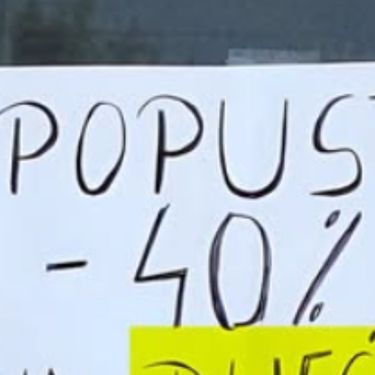 POPUS
- 40%